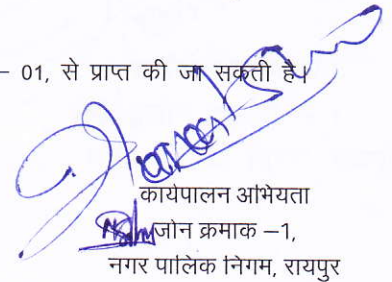 – 01, से प्राप्त की जा सकती है।
कार्यपालन अभियंता
जोन क्रमांक –1,
नगर पालिक निगम, रायपुर